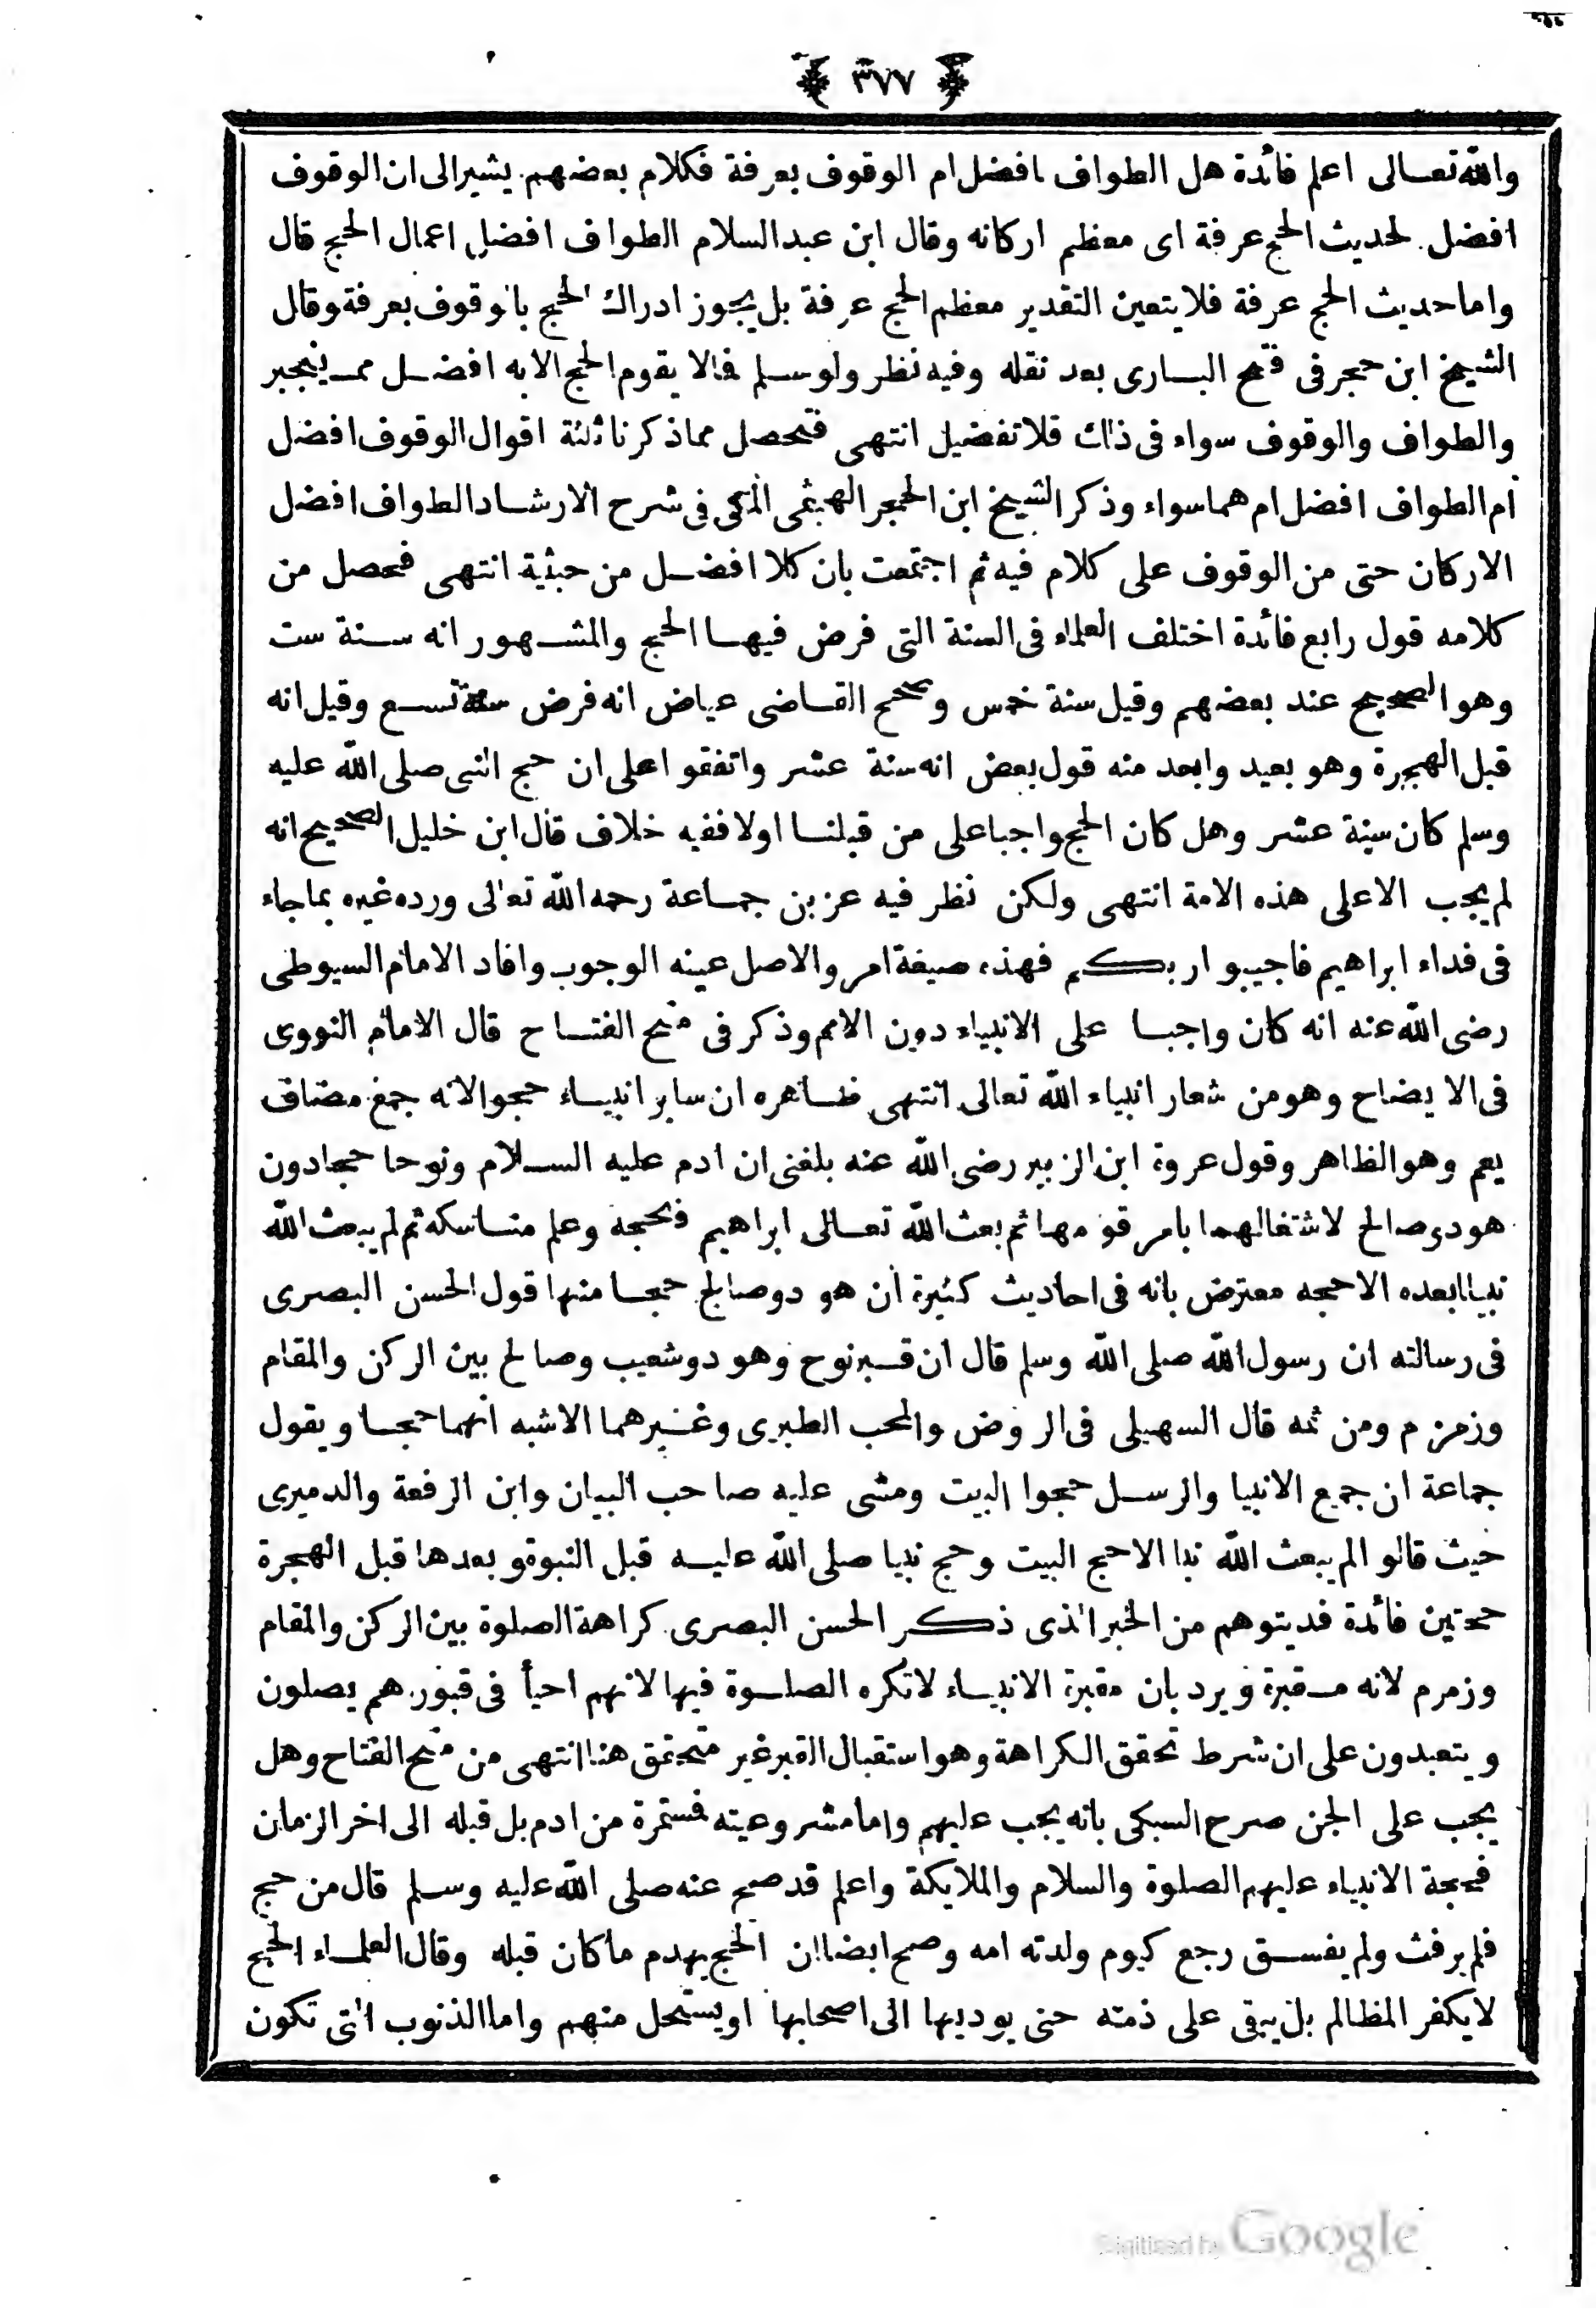 ﴿ ٣٧٧ ﴾
والله تعالى اعلم فائدة هل الطواف افضل ام الوقوف بعرفة فكلام بعضهم يشير الى ان الوقوف
افضل لحديث الحج عرفة اى معظم اركانه وقال ابن عبد السلام الطواف افضل اعمال الحج قال
واما حديث الحج عرفة فلا يتعين التقدير معظم الحج عرفة بل يجوز ادراك الحج بالوقوف بعرفة وقال
الشيخ ابن حجر فى فتح البارى بعد نقله وفيه نظر ولو سلم فالا يقوم الحج الا به افضل مما ينجبر
والطواف والوقوف سواء فى ذاك فلا تفضيل انتهى فتحصل مما ذكرنا ثلثة اقوال الوقوف افضل
ام الطواف افضل ام هما سواء وذكر الشيخ ابن الحجر الهيثمى المكى فى شرح الارشاد الطواف افضل
الاركان حتى من الوقوف على كلام فيه ثم اجتمعت بان كلا افضل من حيثية انتهى فحصل من
كلامه قول رابع فائدة اختلف العلماء فى السنة التى فرض فيها الحج والمشهور انه سنة ست
وهو الصحيح عند بعضهم وقيل سنة خمس وصحح القاضى عياض انه فرض سنة تسع وقيل انه
قبل الهجرة وهو بعيد وابعد منه قول بعض انه سنة عشر واتفقوا على ان حج النبى صلى الله عليه
وسلم كان سنة عشر وهل كان الحج واجبا على من قبلنا اولا ففيه خلاف قال ابن خليل الصحيح انه
لم يجب الا على هذه الامة انتهى ولكن نظر فيه عز بن جماعة رحمه الله تعالى ورده غيره بما جاء
فى فداء ابراهيم فاجيبوا ربكم فهذه صيغة امر والاصل عينه الوجوب وافاد الامام السيوطى
رضى الله عنه انه كان واجبا على الانبياء دون الامم وذكر فى منح الفتاح قال الامام النووى
فى الايضاح وهو من شعار انبياء الله تعالى انتهى ظاهره ان ساير انبياء حجوا لانه جمع مضاف
يعم وهو الظاهر وقول عروة ابن الزبير رضى الله عنه بلغنى ان ادم عليه السلام ونوحا حجا دون
هود وصالح لاشتغالهما بامر قومهما ثم بعث الله تعالى ابراهيم فحجه وعلم مناسكه ثم لم يبعث الله
نبيا بعده الا حجه معترض بانه فى احاديث كثيرة ان هو دو صالح حجا منها قول الحسن البصرى
فى رسالته ان رسول الله صلى الله وسلم قال ان قبر نوح وهو دو شعيب وصالح بين الركن والمقام
وزمزم ومن ثمه قال السهيلى فى الروض والمحب الطبرى وغيرهما الاشبه انهما حجا ويقول
جماعة ان جميع الانبيا والرسل حجوا البيت ومشى عليه صاحب البيان وابن الرفعة والدميرى
حيث قالوا لم يبعث الله نبيا الا حج البيت وحج نبيا صلى الله عليه قبل النبوة وبعدها قبل الهجرة
حجتين فائدة قد يتوهم من الخبر الذى ذكر الحسن البصرى كراهة الصلوة بين الركن والمقام
وزمرم لانه مقبرة ويرد بان مقبرة الانبياء لا تكره الصلوة فيها لانهم احيأ فى قبورهم يصلون
ويتعبدون على ان شرط تحقق الكراهة وهو استقبال القبر غير متحقق هنا انتهى من منح الفتاح وهل
يجب على الجن صرح السبكى بانه يجب عليهم واما مشروعيته فمستمرة من ادم بل قبله الى اخر الزمان
فحجة الانبياء عليهم الصلوة والسلام والملايكة واعلم قد صح عنه صلى الله عليه وسلم قال من حج
فلم يرفث ولم يفسق رجع كيوم ولدته امه وصح ايضا ان الحج يهدم ما كان قبله وقال العلماء الحج
لا يكفر المظالم بل يبقى على ذمته حتى يوديها الى اصحابها او يستحل منهم واما الذنوب التى تكون
Digitized by Google